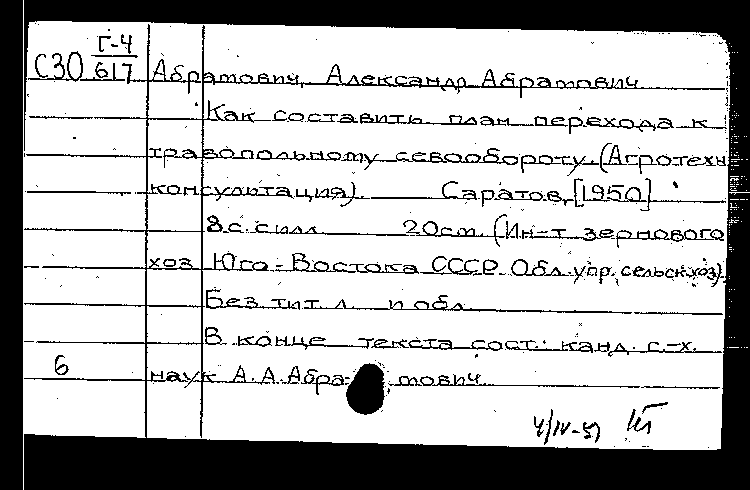 Г-4
С30 617 Абрамович, Александр Абрамович
Как составить план перехода к
травопольному севообороту. (Агротехн
консультация). Саратов, [1950]
8 с. с илл. 20 см. (Ин-т зернового
хоз. Юго-Востока СССР. Обл. упр. сельск. хоз).
Без тит. л. и обл.
В конце текста сост.: канд. с.-х.
6 наук А. А. Абрамович.
4/IV-51